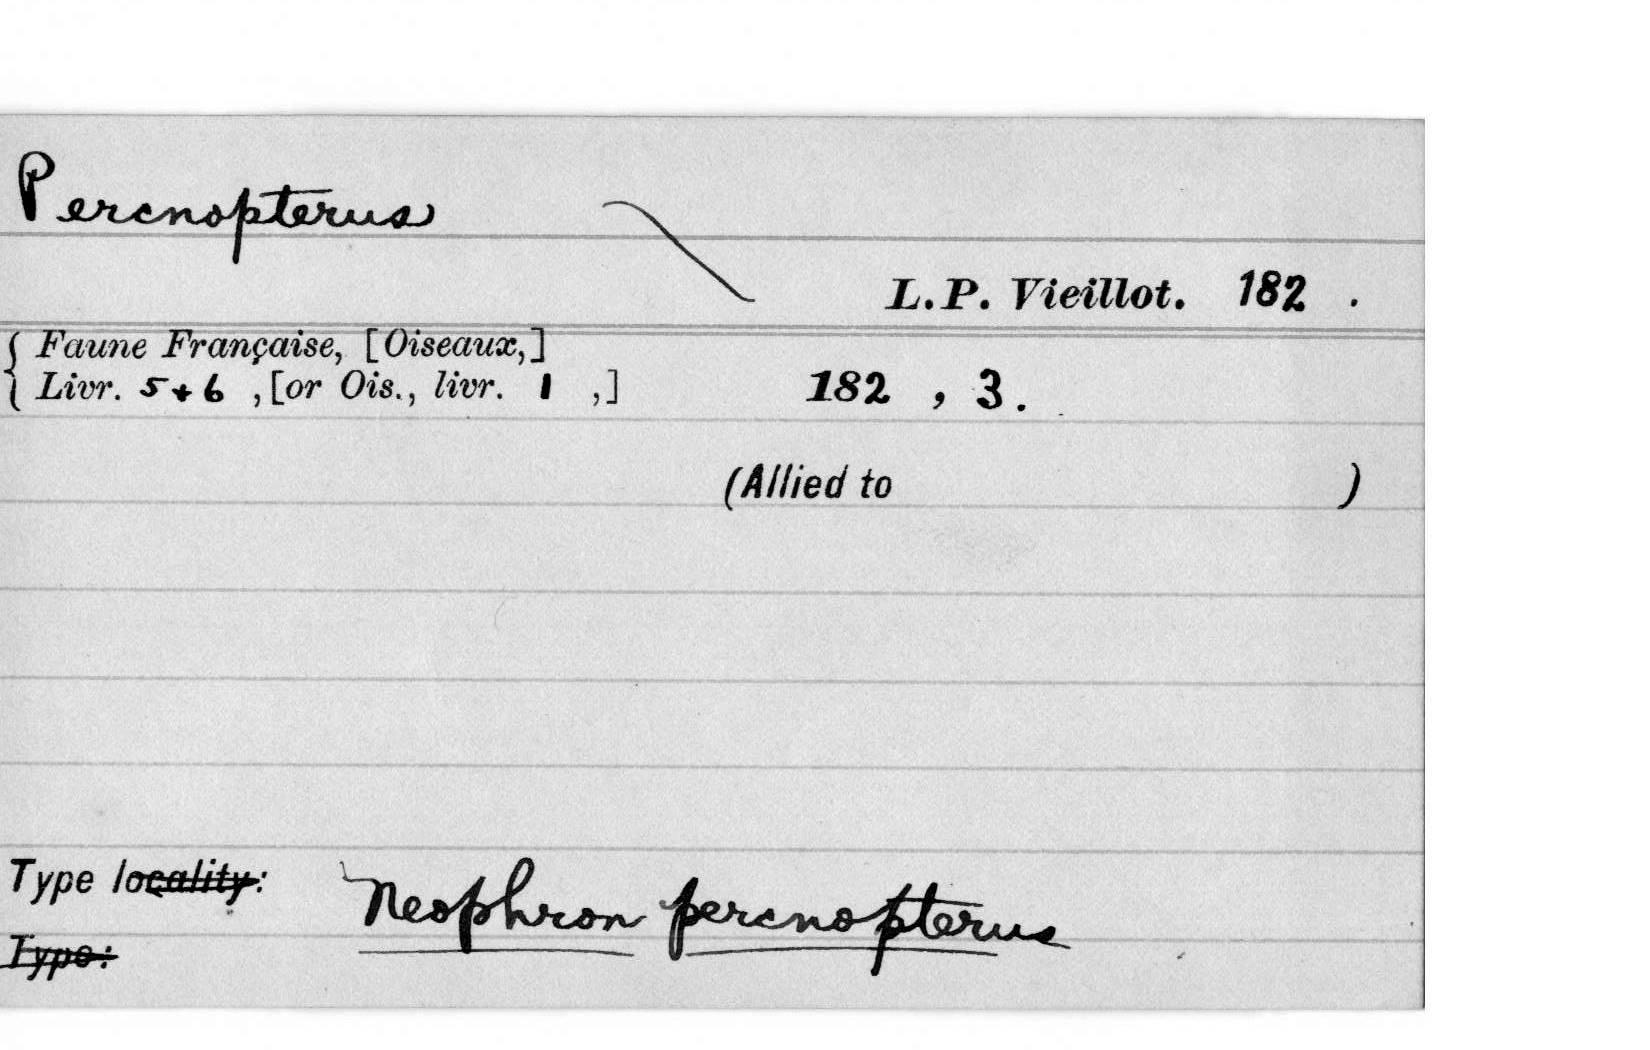 Percnopterus
L.P. Vieillot. 182 .
Faune Française, [Oiseaux,]
Livr. 5+6 ,[or Ois., livr. 1 ,] 182 , 3.
(Allied to )
Type locality: Neophron percnopterus
Type: